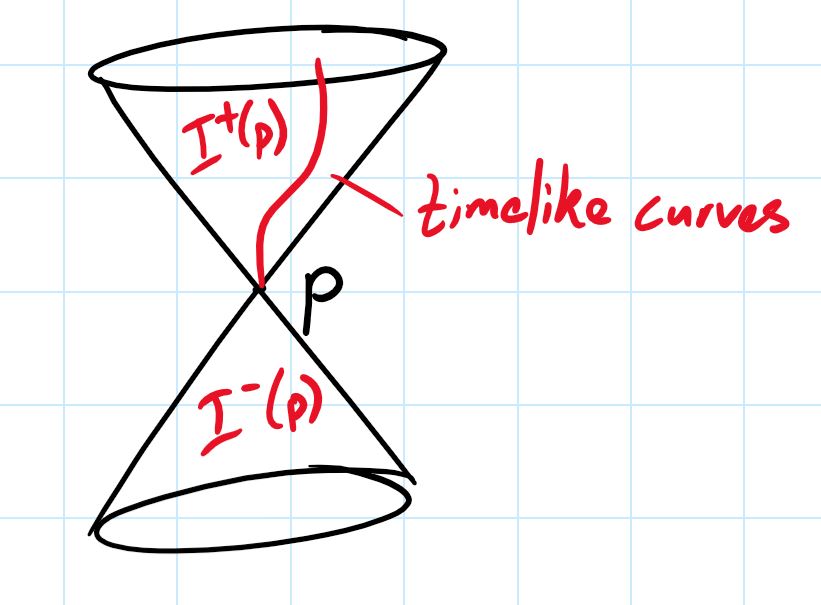 I⁺(p)
timelike curves
p
I⁻(p)